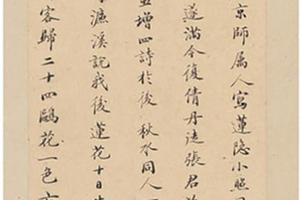 京師属人寫蓮隐小照
遂滿今復倩丹逵張君
並增四詩於後秋水同人
濂溪説我後蓮花十日
客歸二十四鷗花一色